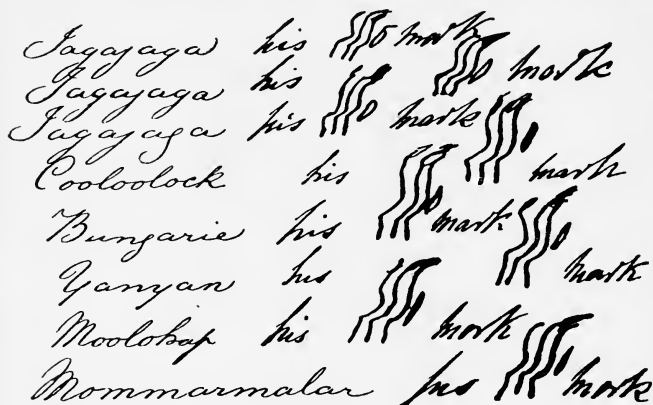 Jagajaga his mark
Jagajaga his mark
Jagajaga his mark
Cooloolock his mark
Bungarie his mark
Yanyan his mark
Moolokap his mark
Mommarmalar his mark